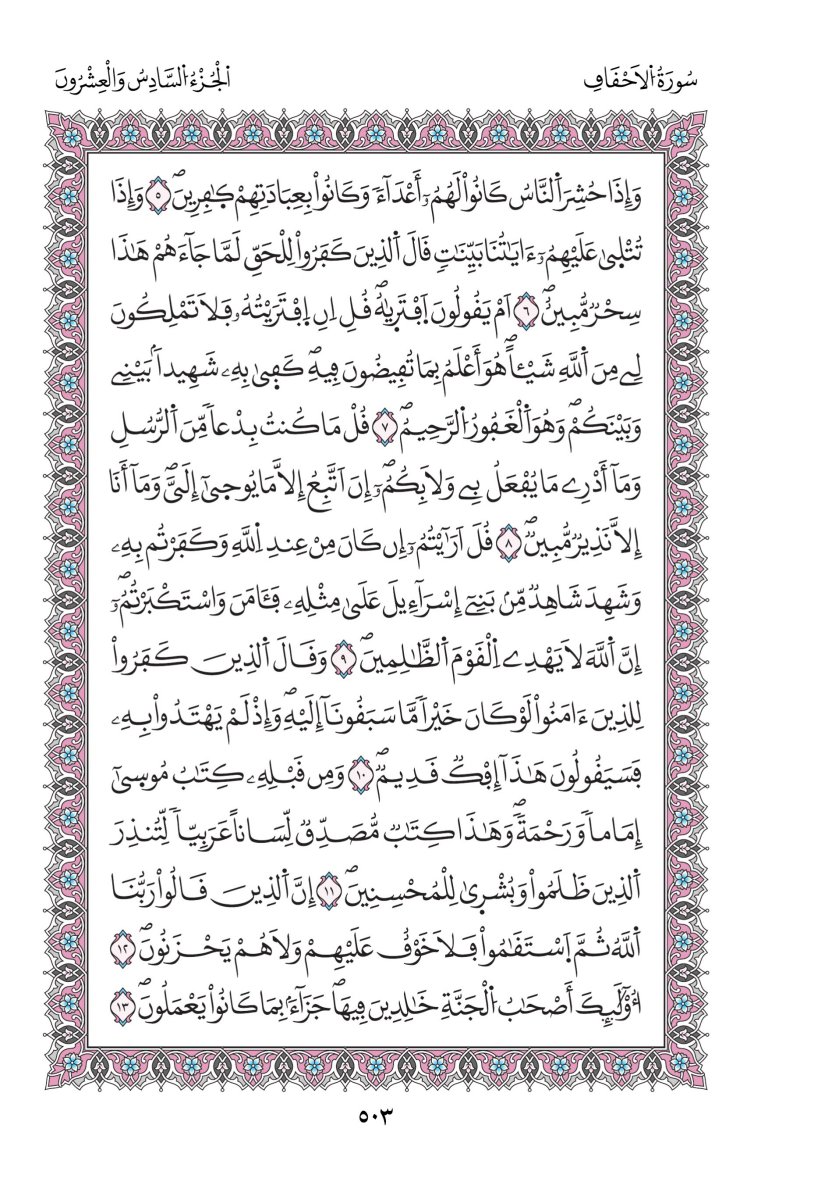 سُورَةُ اُلاَحْقَافِ
اُلْجُزْءُ اُلسَّادِسُ وَالْعِشْرُونَ
وَإِذَا حُشِرَ اَلنَّاسُ كَانُواْ لَهُمُۥٓ أَعْدَآءٗ وَكَانُواْ بِعِبَادَتِهِمْ كٰفِرِينَۖ ٥ وَإِذَا
تُتْلٖىٰ عَلَيْهِمُۥٓ ءَايَٰتُنَا بَيِّنَٰتٖ قَالَ اَلذِينَ كَفَرُواْ لِلْحَقِّ لَمَّا جَآءَهُمْ هَٰذَا
سِحْرٞ مُّبِينٌۖ ٦ اَمْ يَقُولُونَ اَفْتَرٖيٰهُۖ قُلِ اِنِ اِفْتَرَيْتُهُۥ فَلَا تَمْلِكُونَ
لِے مِنَ اَللَّهِ شَيْـٔاًۖ هُوَ أَعْلَمُ بِمَا تُفِيضُونَ فِيهِۖ كَفٖىٰ بِهِۦ شَهِيداَۢ بَيْنِے
وَبَيْنَكُمْۖ وَهُوَ اَلْغَفُورُ اُلرَّحِيمُۖ ٧ قُلْ مَا كُنتُ بِدْعاٗ مِّنَ اَلرُّسُلِ
وَمَآ أَدْرِے مَا يُفْعَلُ بِے وَلَا بِكُمُۥٓۖ إِنَ اَتَّبِعُ إِلَّا مَا يُوحٖىٰٓ إِلَيَّۖ وَمَآ أَنَا
إِلَّا نَذِيرٞ مُّبِينٞۖ ٨ قُلَ اَرَٰيْتُمُۥٓ إِن كَانَ مِنْ عِندِ اِللَّهِ وَكَفَرْتُم بِهِۦ
وَشَهِدَ شَاهِدٞ مِّنۢ بَنِےٓ إِسْرَآءِيلَ عَلَىٰ مِثْلِهِۦ فَـَٔامَنَ وَاسْتَكْبَرْتُمُۥٓۖ
إِنَّ اَللَّهَ لَا يَهْدِے اِلْقَوْمَ اَلظَّٰلِمِينَۖ ٩ وَقَالَ اَلذِينَ كَفَرُواْ
لِلذِينَ ءَامَنُواْ لَوْ كَانَ خَيْراٗ مَّا سَبَقُونَآ إِلَيْهِۖ وَإِذْ لَمْ يَهْتَدُواْ بِهِۦ
فَسَيَقُولُونَ هَٰذَآ إِفْكٞ قَدِيمٞۖ ١٠ وَمِن قَبْلِهِۦ كِتَٰبُ مُوسٖىٰٓ
إِمَاماٗ وَرَحْمَةٗۖ وَهَٰذَا كِتَٰبٞ مُّصَدِّقٞ لِّسَاناً عَرَبِيّاٗ لِّتُنذِرَ
اَلذِينَ ظَلَمُواْ وَبُشْرٖىٰ لِلْمُحْسِنِينَۖ ١١ إِنَّ اَلذِينَ قَالُواْ رَبُّنَا
اَللَّهُ ثُمَّ اَسْتَقَٰمُواْ فَلَا خَوْفٌ عَلَيْهِمْ وَلَا هُمْ يَحْزَنُونَۖ ١٢
أُوْلَٰٓئِكَ أَصْحَٰبُ اُلْجَنَّةِ خَٰلِدِينَ فِيهَاۖ جَزَآءَۢ بِمَا كَانُواْ يَعْمَلُونَۖ ١٣
٥٠٣